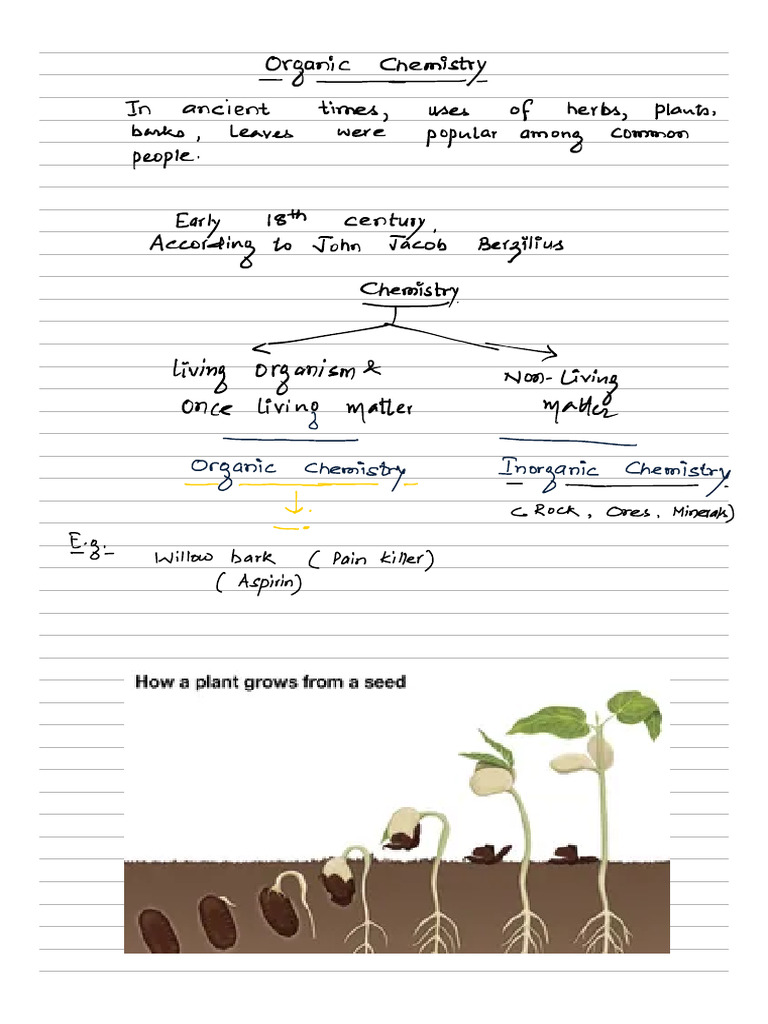 Organic Chemistry
In ancient times, uses of herbs, plants.
barks, leaves were popular among common
people.
Early 18th century,
According to John Jacob Berzilius
Chemistry
Living organism & Non-Living
once living matter matter
Organic Chemistry Inorganic Chemistry
( Rock, Ores, Minerals)
E.g:- Willow bark ( Pain killer)
( Aspirin)
How a plant grows from a seed